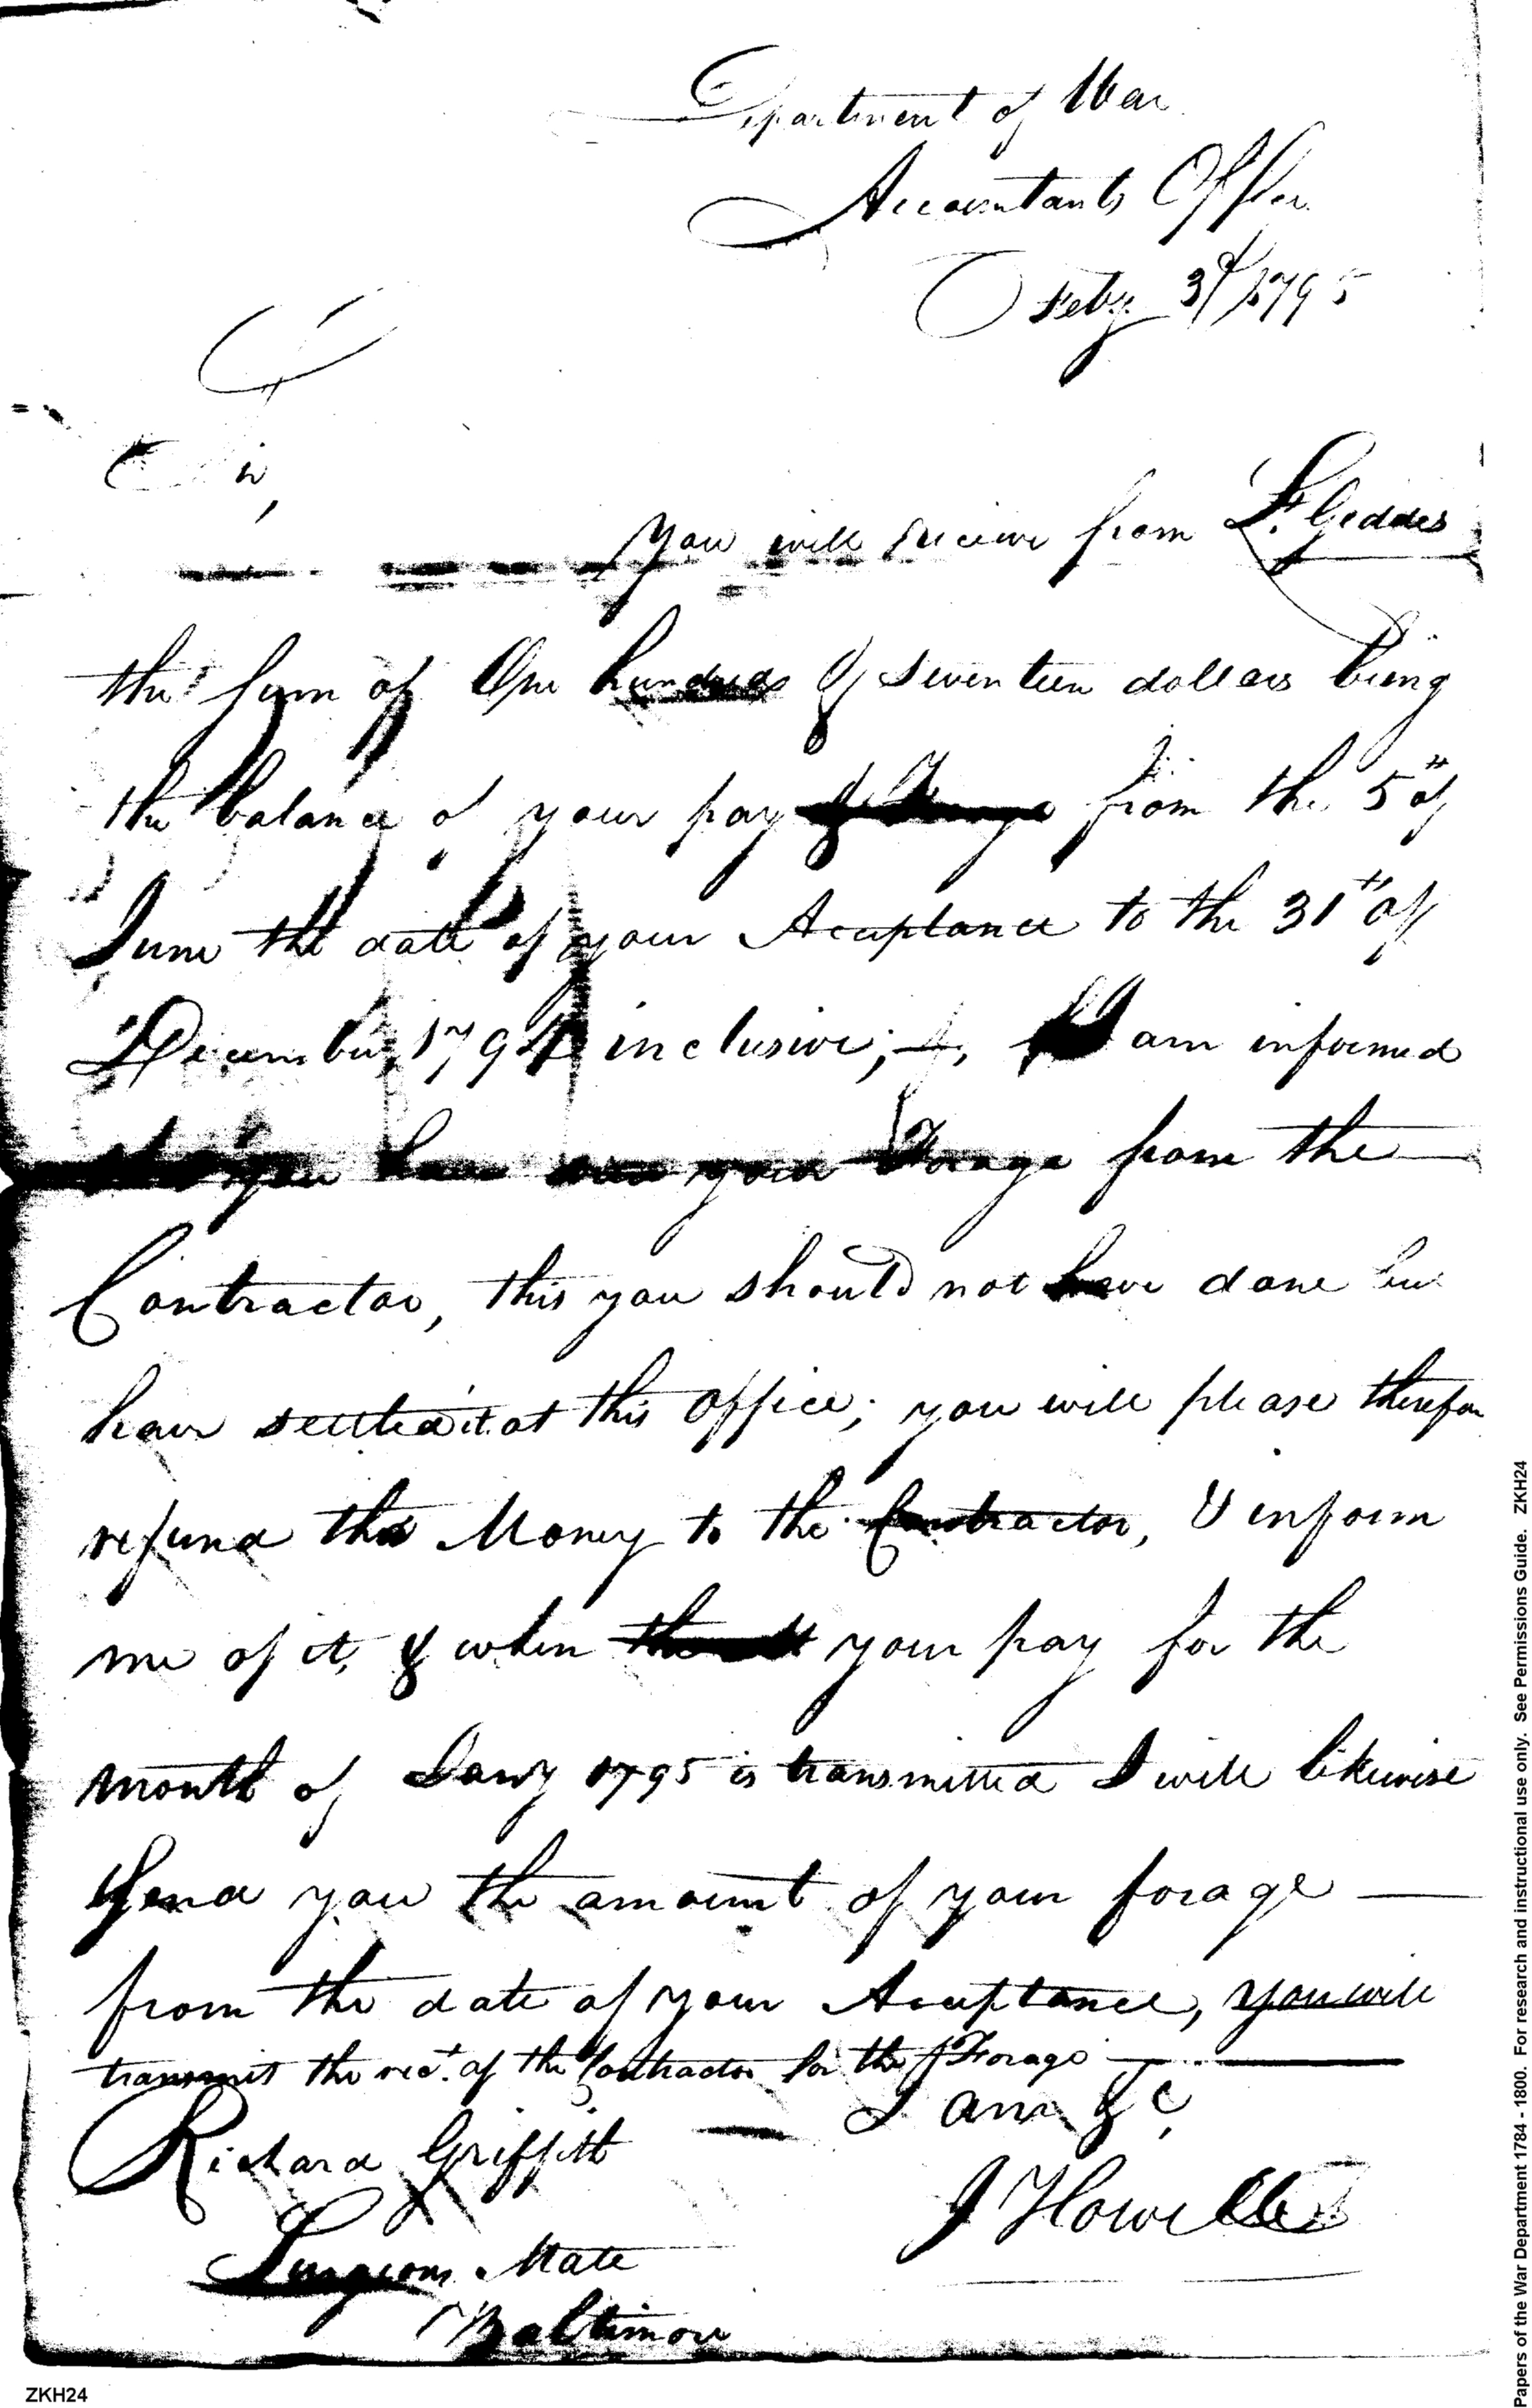 Department of War
Accountants Office
Feby 3d 1795
Sir,
you will receive from Lt. Geddes
the sum of One hundred & seventeen dollars being
the balance of your pay from the 5th of
June the date of your Acceptance to the 31st of
December 1794 inclusive; I am informed
you have your Forage from the
Contractor, this you should not have done but
have settled it at this office; you will please therefore
refund the Money to the Contractor, & inform
me of it, & when your pay for the
month of Jany 1795 is transmitted I will likewise
send you the amount of your forage
from the date of your Acceptance, you will
transmit the rect. of the Contractor for the Forage
I am &c
Richard Griffith
J Howell
Surgeons Mate
Baltimore
ZKH24
Papers of the War Department 1784 - 1800. For research and instructional use only. See Permissions Guide. ZKH24